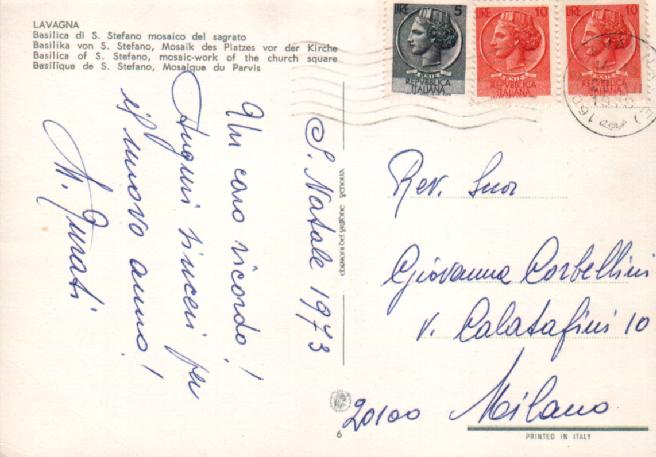 LAVAGNA
Basilica di S. Stefano mosaico del sagrato
Basilika von S. Stefano, Mosaik des Platzes vor der Kirche
Basilica of S. Stefano, mosaic-work of the church square
Basilique de S. Stefano, Mosaïque du Parvis
LIRE 5
REPVBBLICA
ITALIANA
LIRE 10
REPVBBLICA
ITALIANA
LIRE 10
REPVBBLICA
ITALIANA
S. Natale 1973
Un caro ricordo!
Auguri sinceri per
il nuovo anno!
M. Turati
edizioni bet grafione genova
Rev. Suor
Giovanna Corbellini
v. Calatafini 10
20100 Milano
6
PRINTED IN ITALY